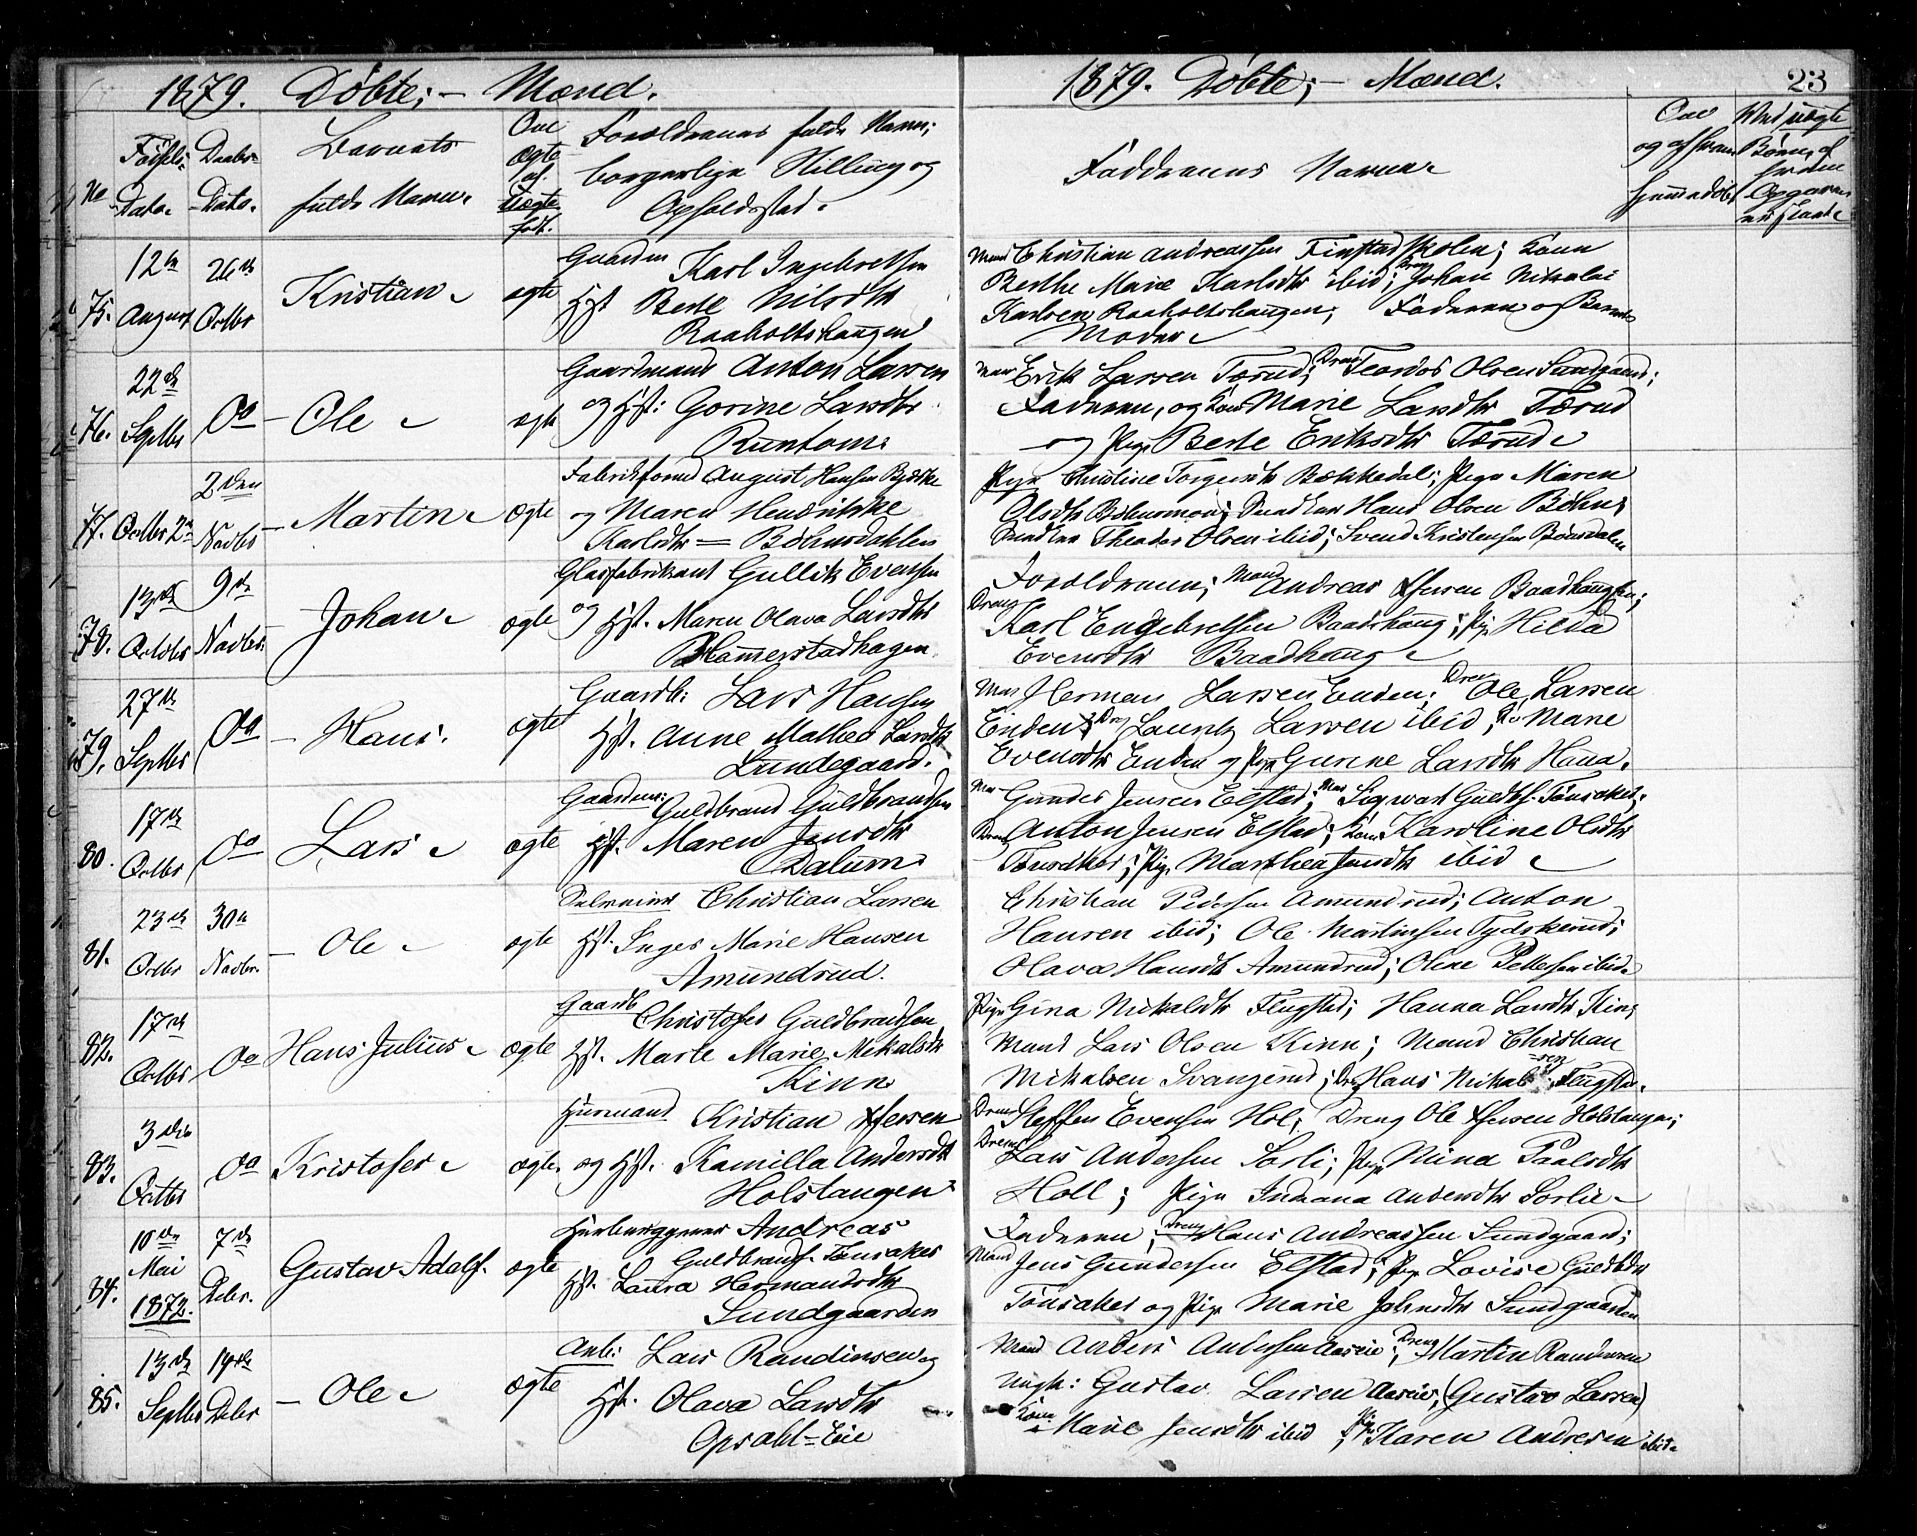 1879. Døbte; - Mænd.
No
Fødsels-
Dato.
Daabs-
Dato.
Barnets
fulde Navn.
Om
ægte
el.
Uægte
fød.
Forældrenes fulde Navn;
borgerlige Stilling og
Opholdssted.
75.
12te
August
26de
Octbr
Kristian
ægte
Gaardm Karl Ingebretsen
Hst Berte Nilsdtr
Raaholtshaugen
76.
22de
Septbr
Do
- Ole
ægte
Gaardmand Anton Larsen
og Hst: Gorine Larsdtr
Runtom
77.
Octbr 2n
2den
Novbr
- Martin
ægte
Fabrikform August Hansen
og Maren Hendrikke
Karlsdtr = Bøhnsdahlen
78.
13de
Octobr
9de
Novbr.
- Johan
ægte
Glasfabrikant Gullik Evensen
og Hst. Maren Olava Larsdtr
Hamerstadhagen
79.
27de
Septbr
Do
- Hans.
ægte
Gaardb: Lars Hansen
Hst. Anne Mathea Larsdtr
Lundegaard.
80.
17de
Octbr
Do
Lars
ægte
Gaardm: Guldbrand Guldbrandsen
Hst. Maren Jensdtr
Dalum
81.
23de
Octbr
30te
Novbr.
- Ole
ægte
Christian Larsen
Hst. Inger Marie Hansen
Amundrud.
82.
17de
Octbr
Do
Hans Julius
ægte
Gaardb Christofer Guldbrandsen
Hst. Marte Marie Mikalsdtr
Kinn
83.
3die
Octbr
Do
Kristofer
ægte.
Husmand Kristian Ifersen
og Hst. Kamilla Andersdtr
Holstangen
84.
10de
Mai
1872.
7de
Debr.
Gustav Adolf.
ægte
Andreas
Guldbrands. Tønsaker
Hst. Laura Hermandsdtr
Sundgaarden
85.
13de
Septbr
14de
Debr
- Ole
ægte
Arb: Lars Randinsen og
Hst. Olava Larsdtr
Opsahl-Eie
1879. Døbte; - Mænd.
23
Faddernes Navne
Om
og af hvem
hjemmedøbt
Ved uægte
Børn, af
hvem
Opgaven
meddelt
Mand Christian Andreassen Finstad Skolen; Kone
Berthe Marie Karlsdtr ibid; Dreng Johan Nikolai
Karlsen Raaholtshaugen; Faderen og Barnets
Moder
Man Erik Larsen Tærud; Dreng Teodor Olsen Sundgaard;
Faderen, og Kone Marie Larsdtr Tærud
og Pige Berte Eriksdtr Tærud
Pige Christine Torgersdtr Bækkedal; Pige Maren
Olsdtr Bøhnsmoen; Hans Olsen Bøhn;
Theodor Olsen ibid; Svend Kristensen Bønsdalen
Forældrene; Mand Andreas Ifersen Baadhaugen;
Dreng Karl Engebretsen Baadshaug; Pige Hilda
Evensdtr Baadhaug
Man Herman Larsen Enden; Dreng Ole Larsen
Enden; Dreng Lauritz Larsen ibid; Marie
Evensdtr Enden og Pige Gurine Larsdtr Haua.
Man Gunder Jensen Elstad; Man Sigwart Guldb. Tønsaker;
Dreng Anton Jensen Elstad; Kone Karoline Olsdtr
Tønsaker; Pige Marthea Jensdtr ibid
Christian Pedersen Amundrud; Anton
Hansen ibid; Ole Martinsen Tydskerud;
Olava Hansdtr Amundrud; Oline Pettersen ibid
Pige Gina Mikalsdtr Flugstad; Hanna Larsdtr Kin;
Mand Lars Olsen Kinn; Mand Christian
Mikalsen Svangerud; Dreng Hans Mikalsen Flugstad.
Dreng Steffen Evensen Hol; Dreng Ole Ifersen Holstangen;
Dreng Lars Andersen Sørli; Pige Mina Paalsdtr
Holl; Pige Indiana Andersdtr Sørlie
Faderen; Dreng Hans Andreassen Sundgaard;
Mand Jens Gundersen Elstad; Pige Lovise Guldbdtr
Tønsaker og Pige Marie Johnsdtr Sundgaarden
Mand Anders Andersen Aaseie; Dreng Martin Randinsen
Ungk: Gustav Larsen Aaseie, (Gustav Larsen)
Kone Marie Jensdtr ibid; Pige Karen Andresen ibid